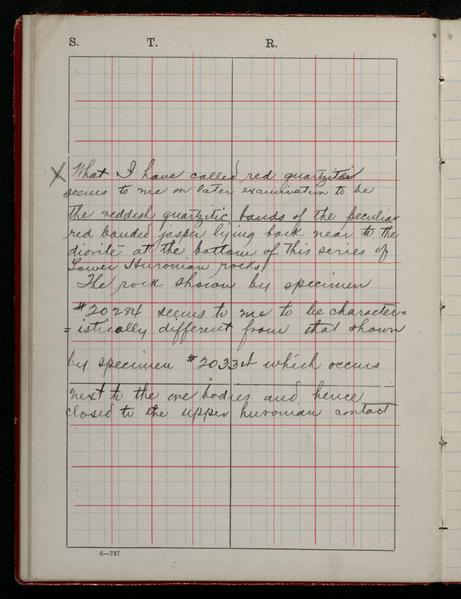 S. T. R.
X What I have called red quartzites
seems to me on later examination to be
the reddish quartzitic bands of the peculiar
red banded jasper lying back near to the
diorite at the bottom of this series of
Lower Huronian rocks.
The rock shown by specimen
#20284 seems to me to be character=
=istically different from that shown
by specimen #20334 which occurs
next to the ore bodies and hence
closed to the upper huronian contact
6—747